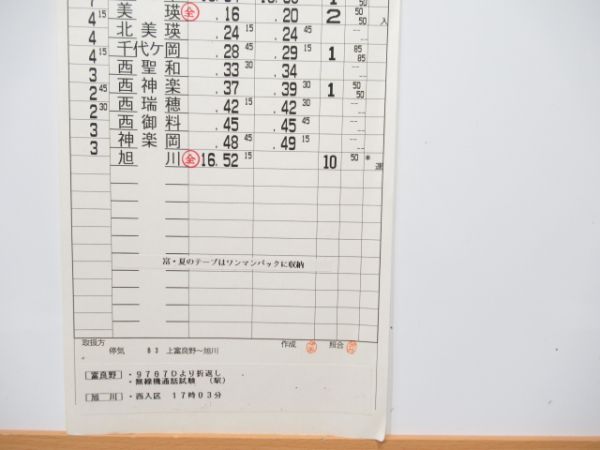 4 15 美 瑛 全 .16 .20 2 50 50 入
4 北 美 瑛 .24 15 .24 45
4 15 千代ケ岡 .28 45 .29 15 1 85 85
3 西 聖 和 .33 30 .34
2 45 西 神 楽 .37 .39 30 1 50 50
2 30 西 瑞 穂 .42 15 .42 30
3 西 御 料 .45 .45 45
3 神 楽 岡 .48 45 .49 15
旭 川 全 16.52 15 10 50 * 運
富・夏のテープはワンマンバックに収納
取扱方 作成 照合
停気 83 上富良野~旭川
[富良野] ・9767Dより折返し
・無線機通話試験 (駅)
[旭 川] ・西入区 17時03分